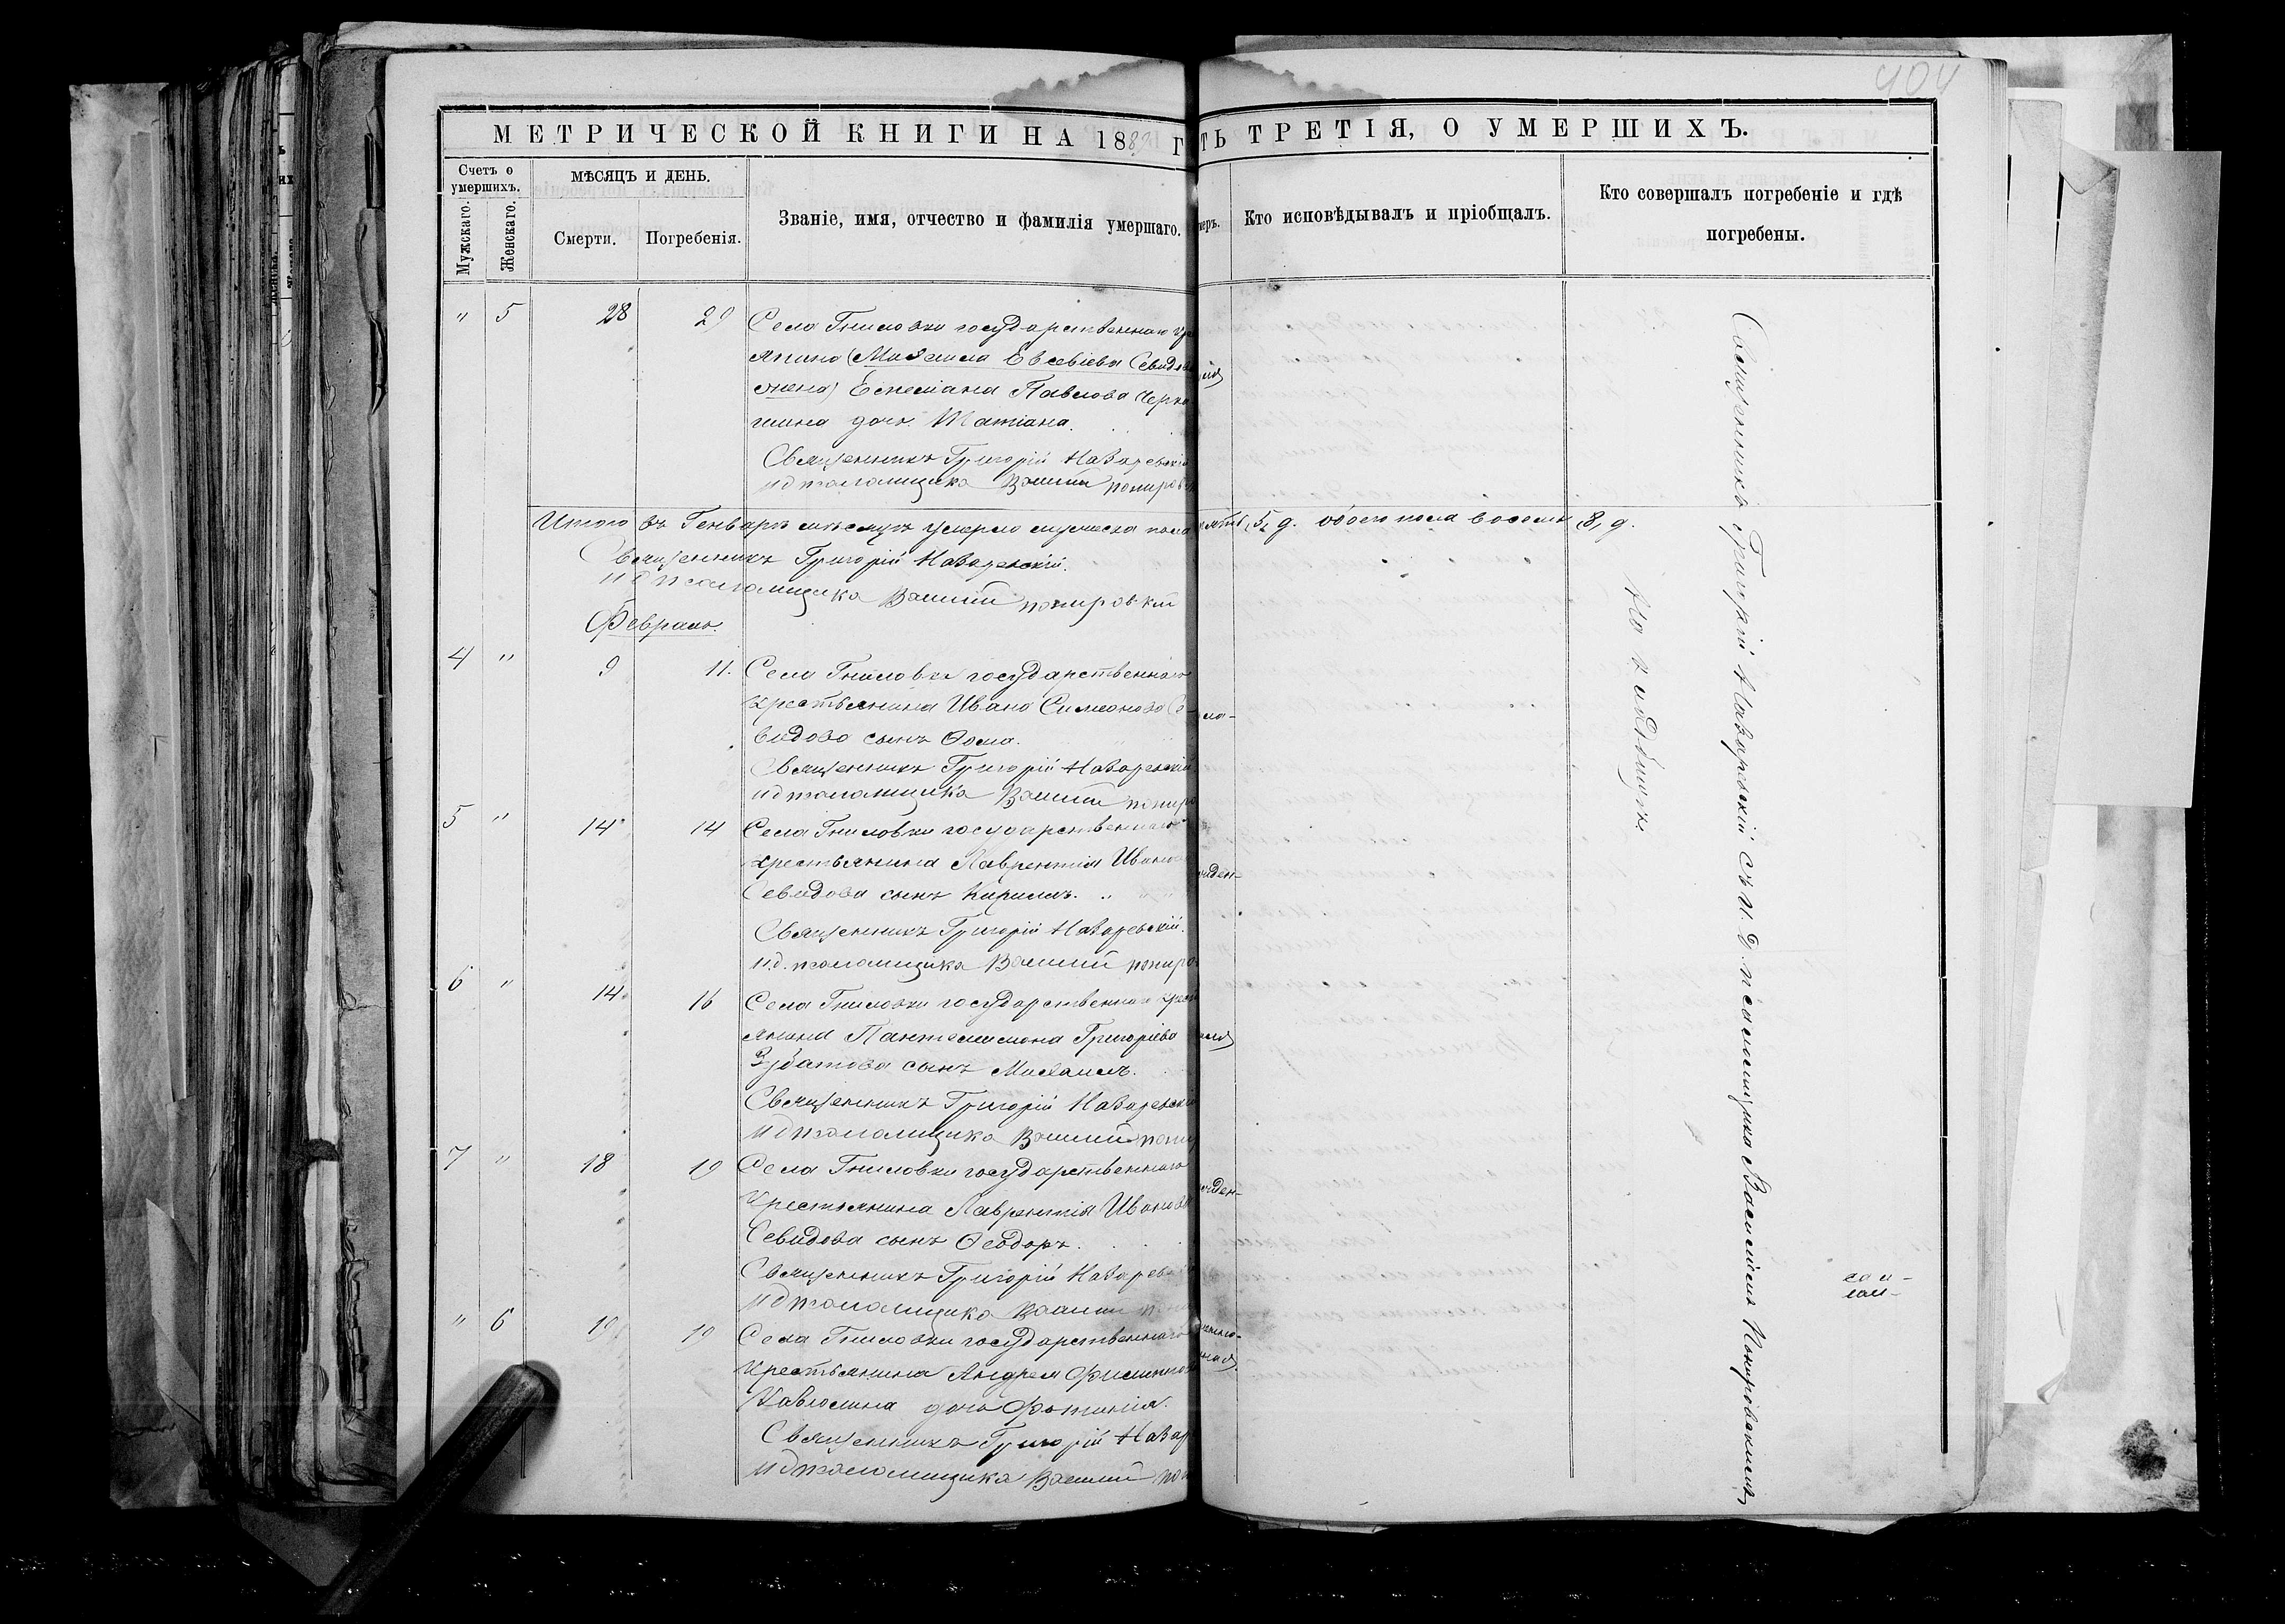 404
МЕТРИЧЕСКОЙ КНИГИ НА 1882 Г
ТЬ ТРЕТІЯ, О УМЕРШИХЪ.
Счетъ о умершихъ.
Мужскаго.
Женскаго.
МѢСЯЦЪ И ДЕНЬ.
Смерти.
Погребенія.
Званіе, имя, отчество и фамилія умершаго.
Кто исповѣдывалъ и пріобщалъ.
Кто совершалъ погребеніе и гдѣ
погребены.
" 5 28 29 Села Гниловки государственнаго кре
янина (Михаила Евсевіева Севидова
жена) Павлова
дочь Татіана.
Священникъ Григорій Назаревскій
и д псаломщика Василій Покиров
Итого въ Генварѣ мѣсяцѣ умерло мужеска пола
5, д. обоего пола восемь 8, д.
Священникъ Григорій Назаревскій.
и д псаломщика Василій Покировскій
Февраль.
4 " 9 11. Села Гниловки государственнаго
крестьянина Ивана Симеонова Се-
видова сынъ Ѳома.
Священникъ Григорій Назаревскій
и д псаломщика Василій Покиро
5 " 14 14 Села Гниловки государственнаго
крестьянина Лаврентія Ивано
Севидова сынъ Кириллъ.
Священникъ Григорій Назаревскій.
и.д. псаломщика Василій Покиро
6 " 14 16 Села Гниловки государственнаго крест
янина Пантелимона Григоріева
Зубатова сынъ Михаилъ.
Священникъ Григорій Назаревскі
и д псаломщика Василій Поки
7 " 18 19 Села Гниловки государственнаго
крестьянина Лаврентія Иванова
Севидова сынъ Ѳеодоръ.
Священникъ Григорій Назарев
и д псаломщика Василій
" 6 19 19 Села Гниловки государственнаго
крестьянина Андрея Филиппо
дочь Фотинія.
Священникъ Григорій Назар
и д псаломщика Василій По
Священникъ Григорій Назаревскій съ и. д. псаломщика Василіемъ Покировскимъ,
На кладбищѣ.